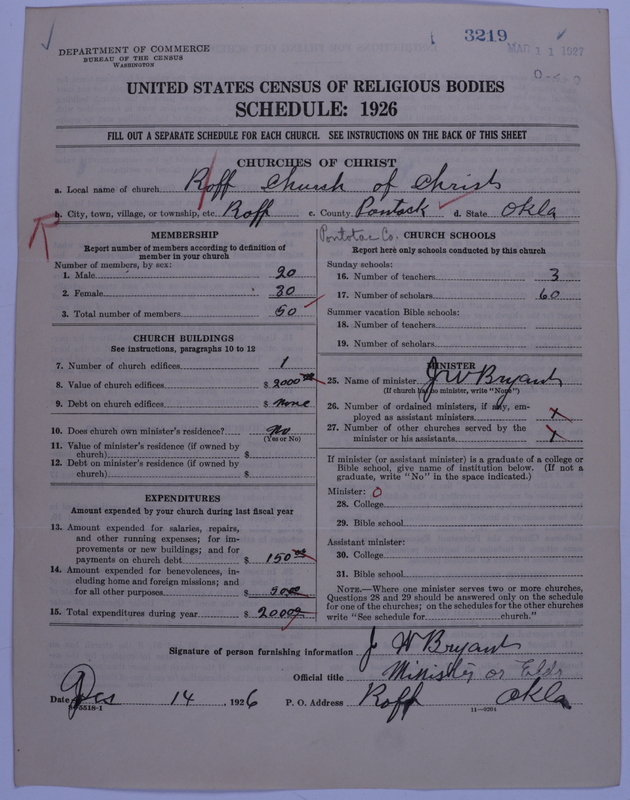 3219
MAR 11 1927
DEPARTMENT OF COMMERCE
BUREAU OF THE CENSUS
WASHINGTON
UNITED STATES CENSUS OF RELIGIOUS BODIES
SCHEDULE: 1926
FILL OUT A SEPARATE SCHEDULE FOR EACH CHURCH. SEE INSTRUCTIONS ON THE BACK OF THIS SHEET
CHURCHES OF CHRIST
a. Local name of church Roff Church of Christ
b. City, town, village, or township, etc. Roff c. County Pontock d. State Okla
R
MEMBERSHIP
Report number of members according to definition of
member in your church
Number of members, by sex:
1. Male 20
2. Female 30
3. Total number of members 50
CHURCH BUILDINGS
See instructions, paragraphs 10 to 12
7. Number of church edifices 1
8. Value of church edifices $ 2000 00
9. Debt on church edifices $ None
10. Does church own minister's residence? No
(Yes or No)
11. Value of minister's residence (if owned by
church) $
12. Debt on minister's residence (if owned by
church) $
EXPENDITURES
Amount expended by your church during last fiscal year
13. Amount expended for salaries, repairs,
and other running expenses; for im-
provements or new buildings; and for
payments on church debt $ 150 00
14. Amount expended for benevolences, in-
cluding home and foreign missions; and
for all other purposes $ 50 00
15. Total expenditures during year $ 200 00
Pontotoc Co. CHURCH SCHOOLS
Report here only schools conducted by this church
Sunday schools:
16. Number of teachers 3
17. Number of scholars 60
Summer vacation Bible schools:
18. Number of teachers
19. Number of scholars
MINISTER
25. Name of minister J W Bryant
(If church has no minister, write "None")
26. Number of ordained ministers, if any, em-
ployed as assistant ministers x
27. Number of other churches served by the
minister or his assistants x
If minister (or assistant minister) is a graduate of a college or
Bible school, give name of institution below. (If not a
graduate, write "No" in the space indicated.)
Minister: 0
28. College
29. Bible school
Assistant minister:
30. College
31. Bible school
NOTE.—Where one minister serves two or more churches,
Questions 28 and 29 should be answered only on the schedule
for one of the churches; on the schedules for the other churches
write "See schedule for church."
Signature of person furnishing information J W Bryant
Official title Minister or Eldr
Date Des 14, 1926 P. O. Address Roff Okla
8-5518-1 11—9204